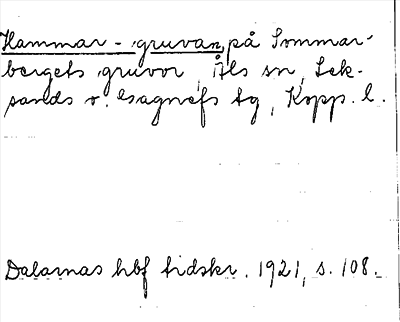 Hammar-gruvan, på Sommar-
bergets gruvor, Åls sn, Lek-
sands o. Gagnefs tg, Kopp. l.
Dalarnas hbf tidskr. 1921, s. 108.